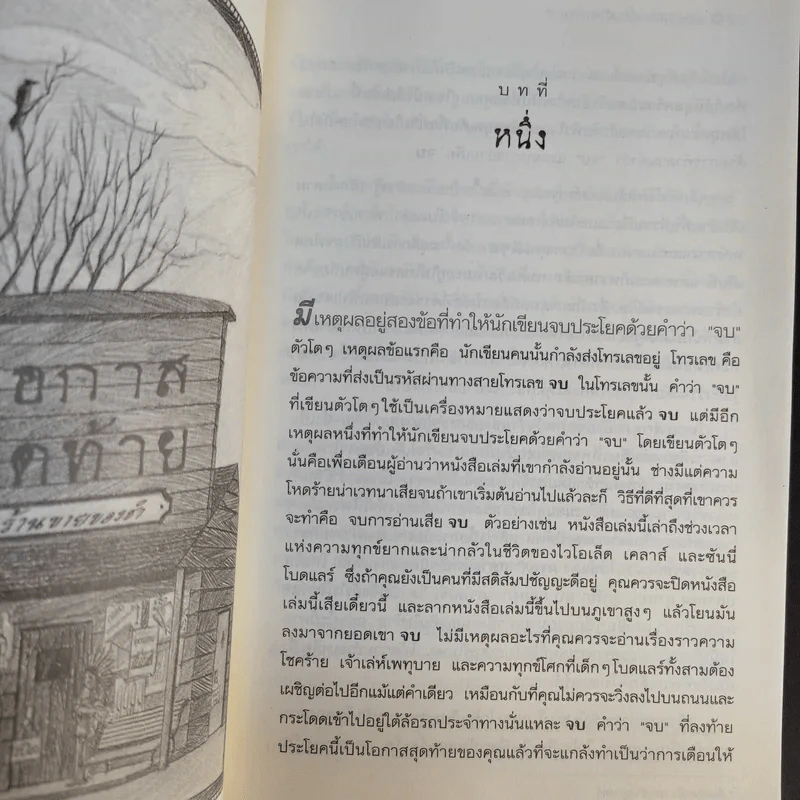 อกาส
ดท้าย
ร้านขายของชำ
บทที่
หนึ่ง
มีเหตุผลอยู่สองข้อที่ทำให้นักเขียนจบประโยคด้วยคำว่า "จบ"
ตัวโตๆ เหตุผลข้อแรกคือ นักเขียนคนนั้นกำลังส่งโทรเลขอยู่ โทรเลข คือ
ข้อความที่ส่งเป็นรหัสผ่านทางสายโทรเลข จบ ในโทรเลขนั้น คำว่า "จบ"
ที่เขียนตัวโตๆ ใช้เป็นเครื่องหมายแสดงว่าจบประโยคแล้ว จบ แต่มีอีก
เหตุผลหนึ่งที่ทำให้นักเขียนจบประโยคด้วยคำว่า "จบ" โดยเขียนตัวโตๆ
นั่นคือเพื่อเตือนผู้อ่านว่าหนังสือเล่มที่เขากำลังอ่านอยู่นั้น ช่างมีแต่ความ
โหดร้ายน่าเวทนาเสียจนถ้าเขาเริ่มต้นอ่านไปแล้วละก็ วิธีที่ดีที่สุดที่เขาควร
จะทำคือ จบการอ่านเสีย จบ ตัวอย่างเช่น หนังสือเล่มนี้เล่าถึงช่วงเวลา
แห่งความทุกข์ยากและน่ากลัวในชีวิตของไวโอเล็ต เคลาส์ และซันนี่
โบดแลร์ ซึ่งถ้าคุณยังเป็นคนที่มีสติสัมปชัญญะดีอยู่ คุณควรจะปิดหนังสือ
เล่มนี้เสียเดี๋ยวนี้ และลากหนังสือเล่มนี้ขึ้นไปบนภูเขาสูงๆ แล้วโยนมัน
ลงมาจากยอดเขา จบ ไม่มีเหตุผลอะไรที่คุณควรจะอ่านเรื่องราวความ
โชคร้าย เจ้าเล่ห์เพทุบาย และความทุกข์โศกที่เด็กๆ โบดแลร์ทั้งสามต้อง
เผชิญต่อไปอีกแม้แต่คำเดียว เหมือนกับที่คุณไม่ควรจะวิ่งลงไปบนถนนและ
กระโดดเข้าไปอยู่ใต้ล้อรถประจำทางนั่นแหละ จบ คำว่า "จบ" ที่ลงท้าย
ประโยคนี้เป็นโอกาสสุดท้ายของคุณแล้วที่จะแกล้งทำเป็นว่าการเตือนให้